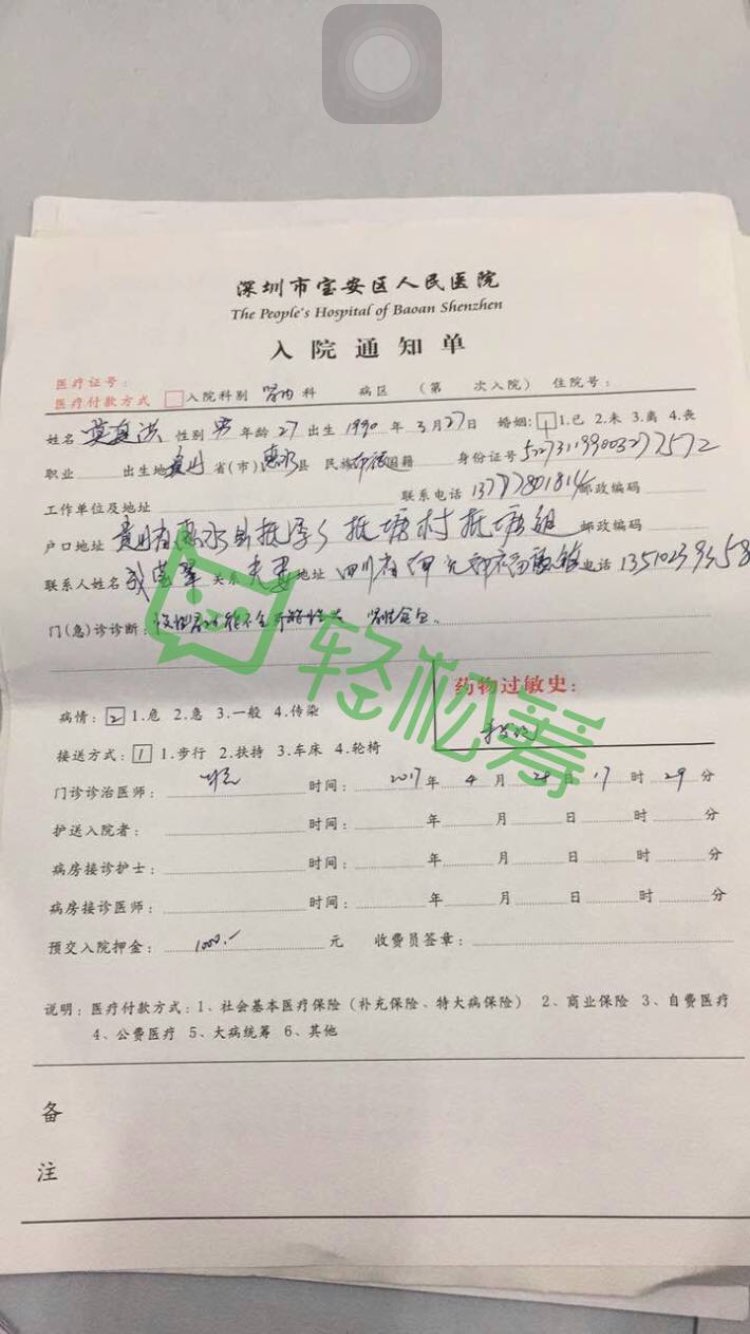 深圳市宝安区人民医院
The People's Hospital of Baoan Shenzhen
入院通知单
医疗证号：
医疗付款方式 入院科别 肾内 科 病区 （第 次入院） 住院号：
姓名 性别 男 年龄 27 出生 1990 年 3 月 27 日 婚姻： 1.已 2.未 3.离 4.丧
职业 出生地 贵州 省(市) 惠水 县 民族 国籍 身份证号
工作单位及地址 联系电话 邮政编码
户口地址 贵州省惠水县抵 抵塘村抵塘组 邮政编码
联系人姓名 关系 夫妻 地址 四川省 电话
门(急)诊诊断：
药物过敏史：
病情： 2 1.危 2.急 3.一般 4.传染
接送方式： 1 1.步行 2.扶持 3.车床 4.轮椅
门诊诊治医师： 时间： 2017 年 4 月 日 17 时 29 分
护送入院者： 时间： 年 月 日 时 分
病房接诊护士： 时间： 年 月 日 时 分
病房接诊医师： 时间： 年 月 日 时 分
预交入院押金： 1000.- 元 收费员签章：
说明：医疗付款方式：1、社会基本医疗保险（补充保险、特大病保险） 2、商业保险 3、自费医疗
4、公费医疗 5、大病统筹 6、其他
备
注
轻松筹